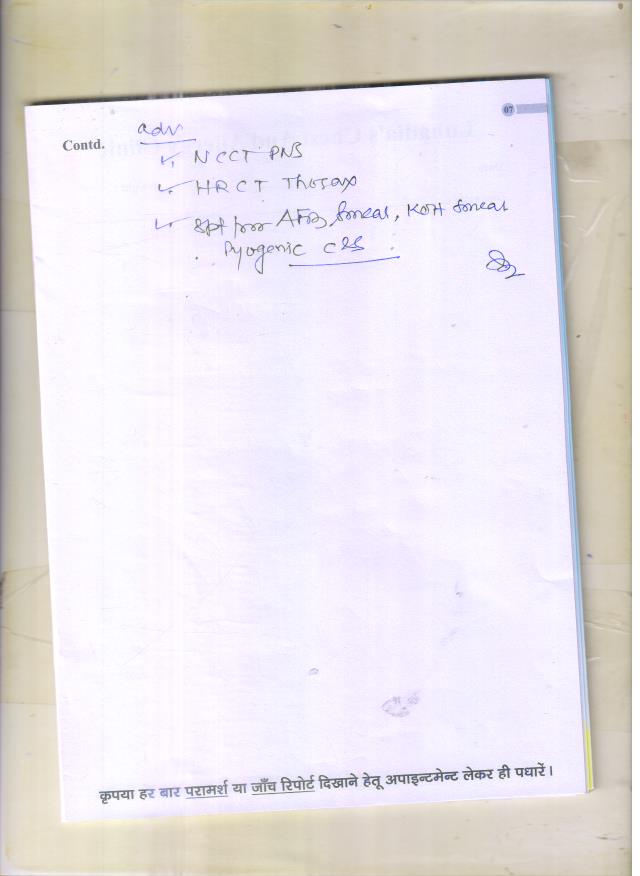 07
Contd.
adv
NCCT PNS
HRCT Thorax
Spt for AFB smear, KOH smear
Pyogenic C&S
कृपया हर बार परामर्श या जाँच रिपोर्ट दिखाने हेतू अपाइन्टमेन्ट लेकर ही पधारें।